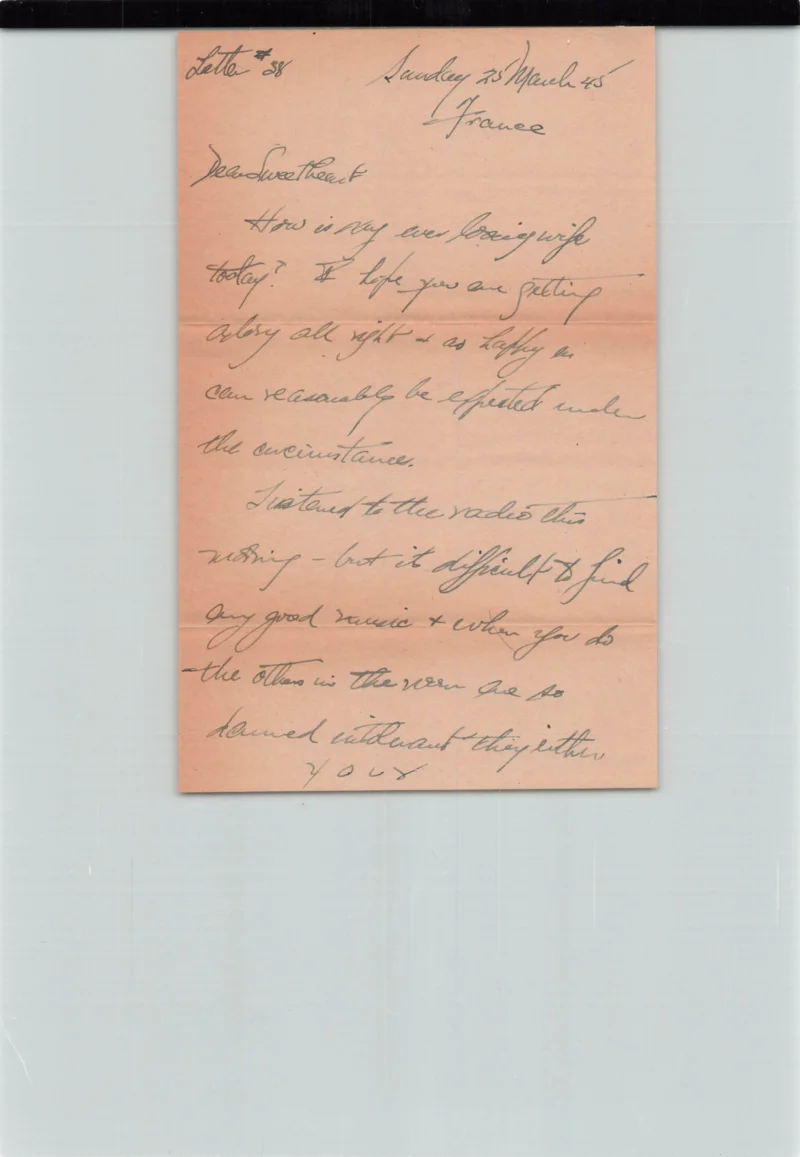 Letter # 38
Sunday 25 March 45
France
Dear Sweetheart
How is my ever loving wife
today? I hope you are getting
along all right & as happy as
can reasonably be expected under
the circumstance.
Listened to the radio this
morning - but its difficult to find
any good music & when you do
the others in the room are so
damned intolerant they either